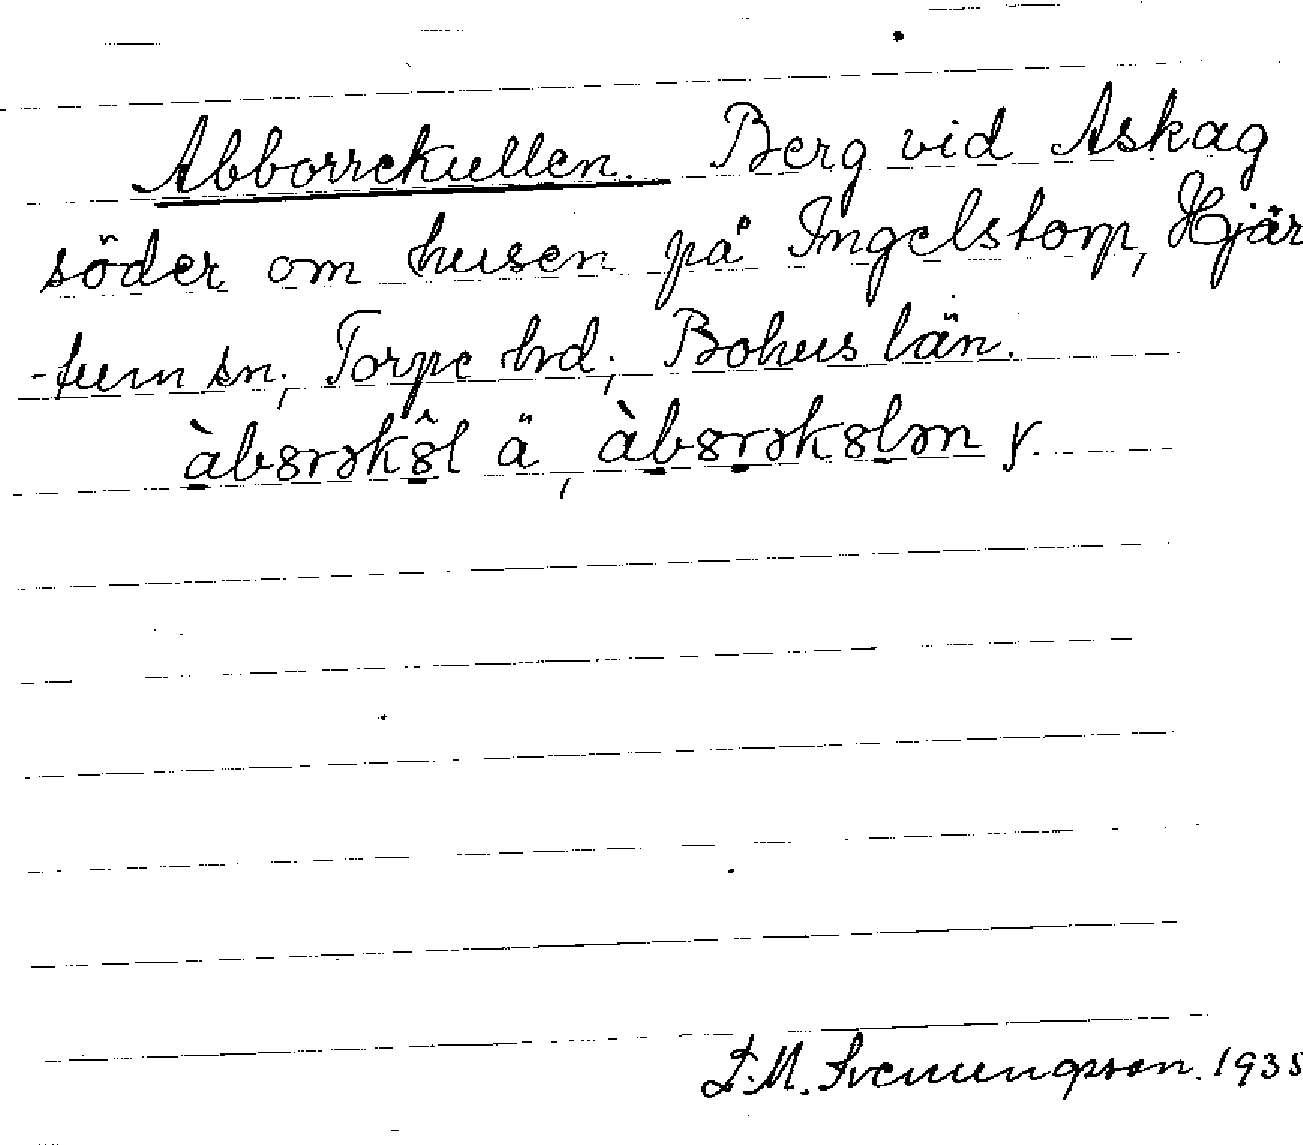 Abborrekullen. Berg vid Askag
söder om husen på Ingelstorp, Hjär
-tum sn, Torpe hd, Bohus län.
àbɜrəkɜ̂l ä, àbɜrəkɜlən y.
M. Svenungsson. 1935